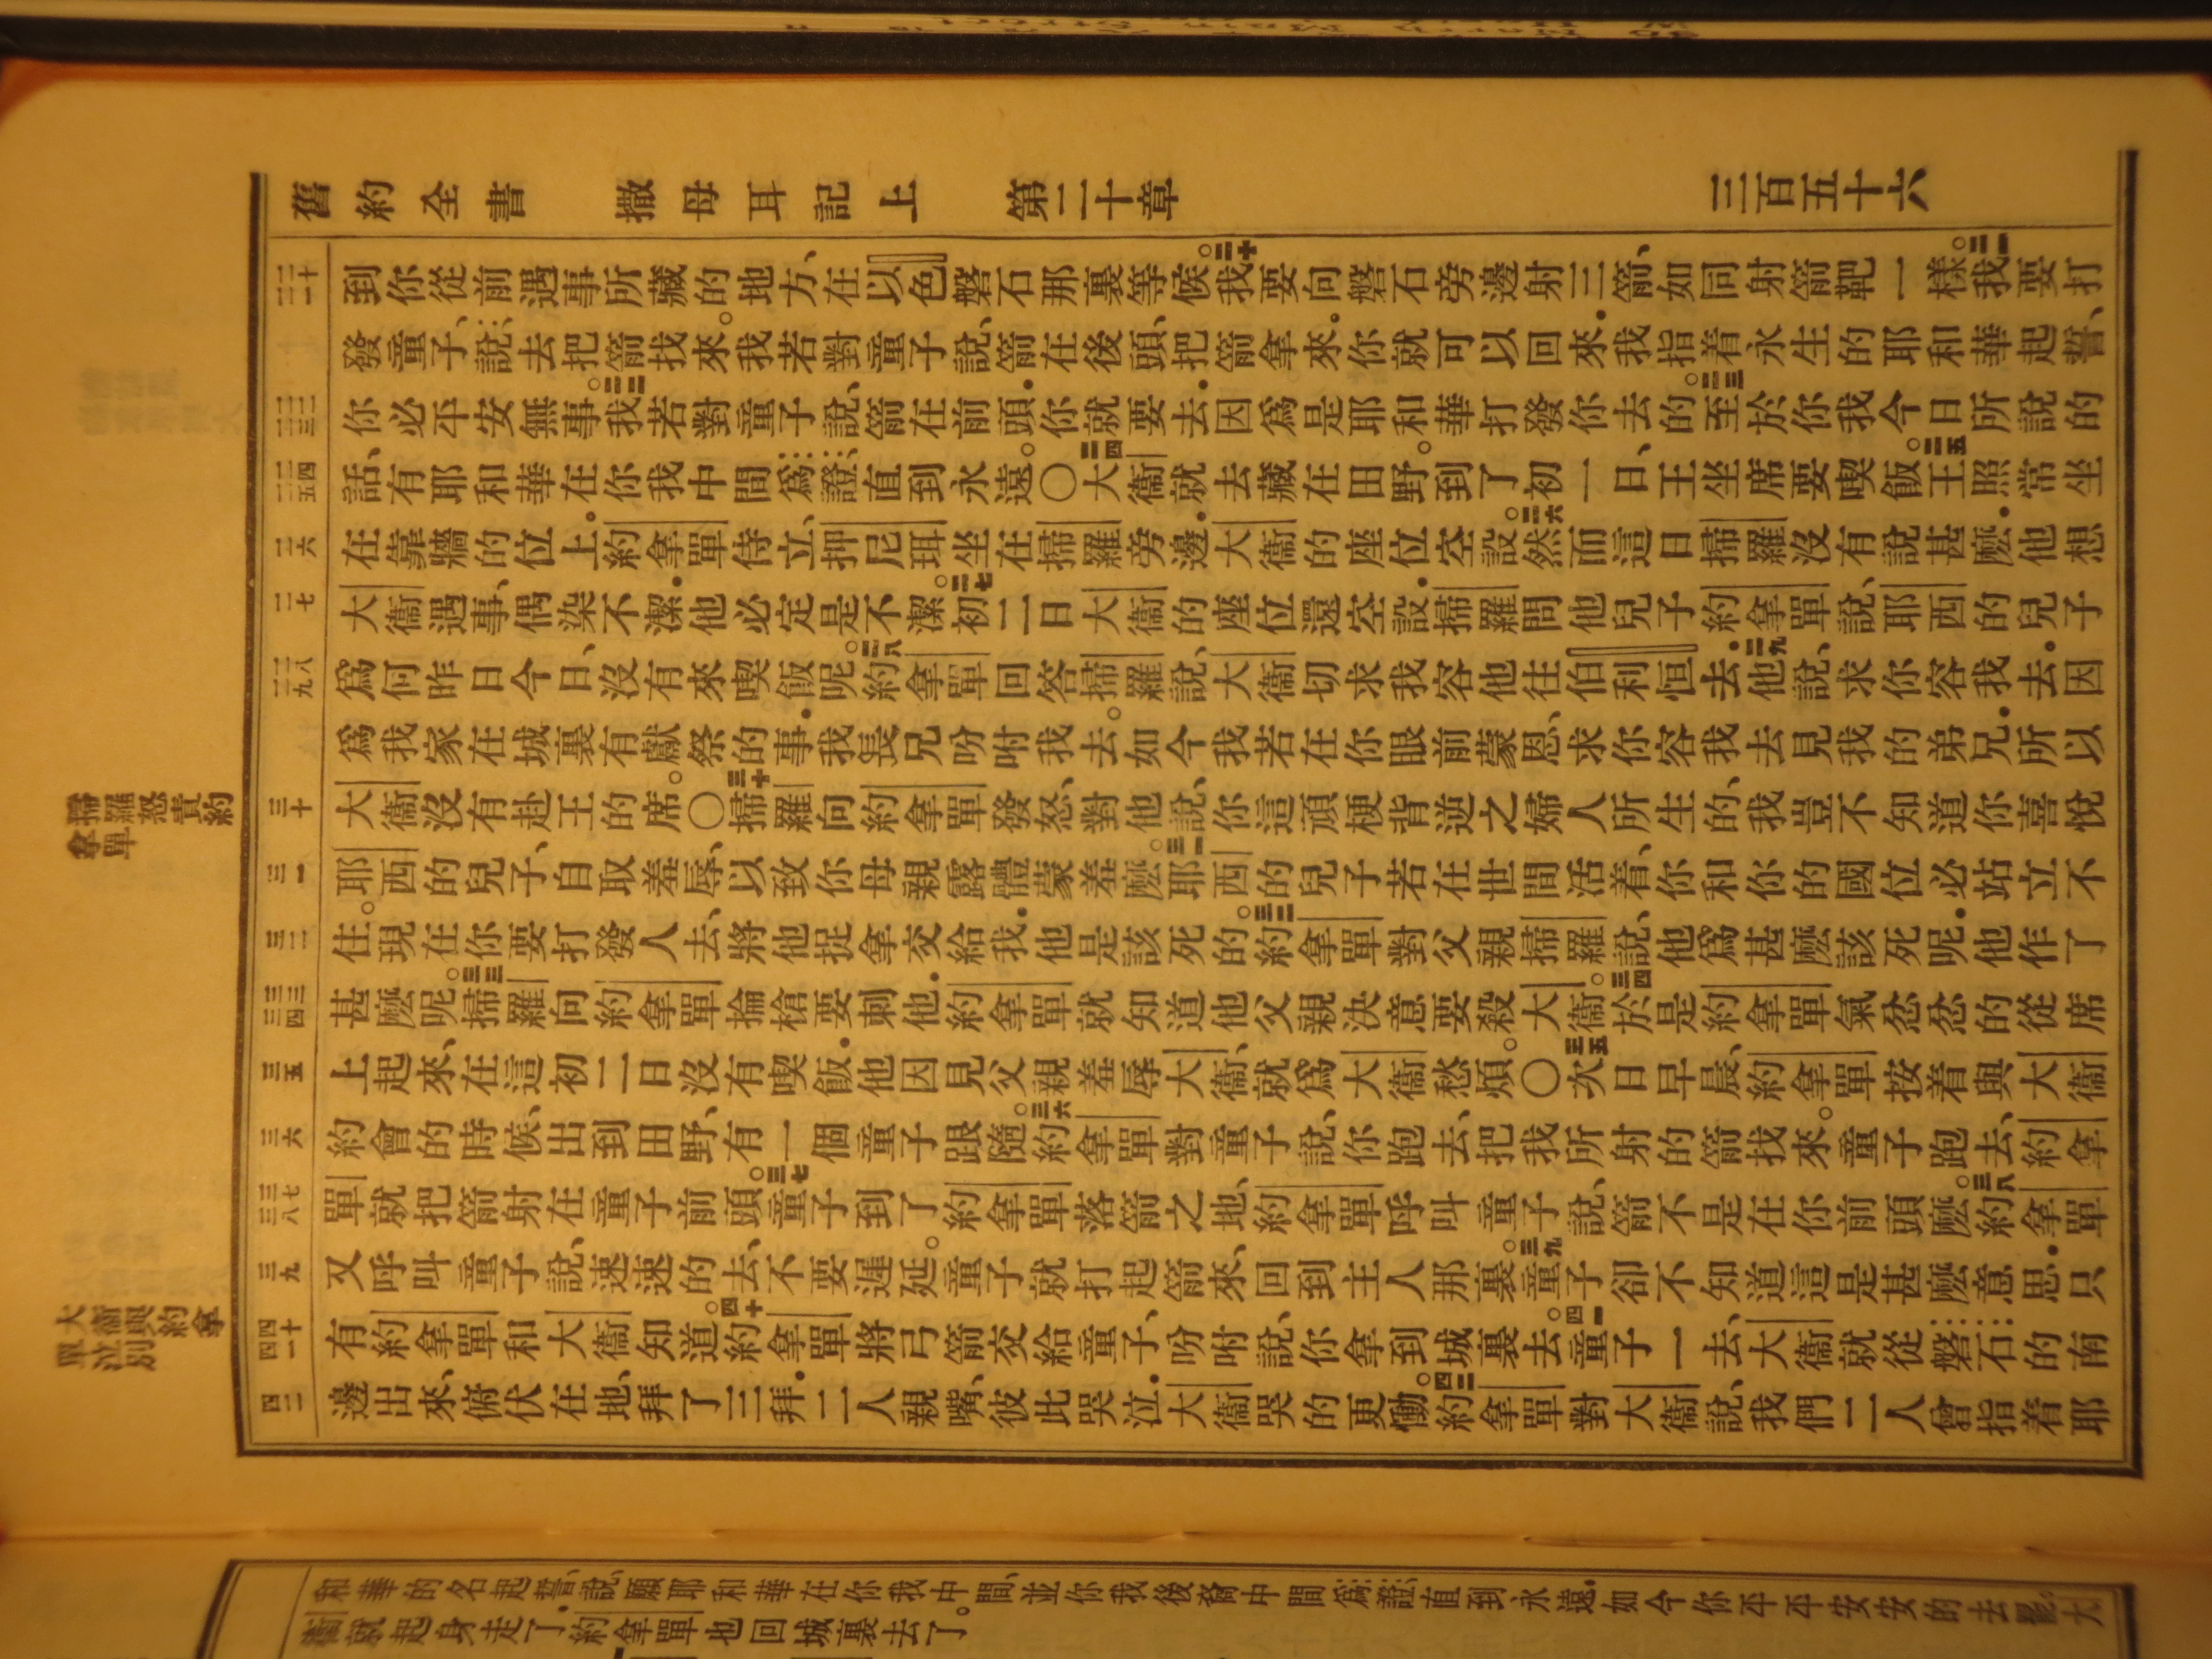 舊約全書 撒母耳記上 第二十章 三百五十六
二十 二一
到你從前遇事所藏的地方、在以色磐石那裏等候。二十我要向磐石旁邊射三箭、如同射箭靶一樣。二一我要打
發童子、說、去把箭找來。我若對童子說、箭在後頭、把箭拿來.你就可以回來.我指着永生的耶和華起誓、
二二 二三
你必平安無事。二二我若對童子說、箭在前頭.你就要去.因爲是耶和華打發你去的。二三至於你我今日所說的
二四 二五
話、有耶和華在你我中間爲證、直到永遠。○二四大衞就去藏在田野。到了初一日、王坐席要喫飯。二五王照常坐
二六
在靠牆的位上.約拿單侍立、押尼珥坐在掃羅旁邊.大衞的座位空設。二六然而這日掃羅沒有說甚麽.他想
二七
大衞遇事、偶染不潔.他必定是不潔。二七初二日大衞的座位還空設.掃羅問他兒子約拿單說、耶西的兒子
二八 二九
爲何昨日今日、沒有來喫飯呢。二八約拿單回答掃羅說、大衞切求我容他往伯利恒去.二九他說、求你容我去.因
爲我家在城裏有獻祭的事.我長兄吩咐我去。如今我若在你眼前蒙恩、求你容我去見我的弟兄.所以
掃羅怒責約拿單
三十
大衞沒有赴王的席。○三十掃羅向約拿單發怒、對他說、你這頑梗背逆之婦人所生的、我豈不知道你喜悅
三一
耶西的兒子、自取羞辱、以致你母親露體蒙羞麽。三一耶西的兒子若在世間活着、你和你的國位必站立不
三二
住。現在你要打發人去、將他捉拿交給我.他是該死的。三二約拿單對父親掃羅說、他爲甚麽該死呢.他作了
三三 三四
甚麽呢。三三掃羅向約拿單掄槍要刺他.約拿單就知道他父親決意要殺大衞。三四於是約拿單氣忿忿的從席
三五
上起來、在這初二日沒有喫飯.他因見父親羞辱大衞、就爲大衞愁煩。○三五次日早晨、約拿單按着與大衞
三六
約會的時候、出到田野、有一個童子跟隨。三六約拿單對童子說、你跑去、把我所射的箭找來。童子跑去、約拿
三七 三八
單就把箭射在童子前頭。三七童子到了約拿單落箭之地、約拿單呼叫童子說、箭不是在你前頭麽。三八約拿單
三九
又呼叫童子說、速速的去、不要遲延。童子就打起箭來、回到主人那裏。三九童子卻不知道這是甚麽意思.只
大衞與約拿單泣別
四十 四一
有約拿單和大衞知道。四十約拿單將弓箭交給童子、吩咐說、你拿到城裏去。四一童子一去、大衞就從磐石的南
四二
邊出來、俯伏在地、拜了三拜.二人親嘴、彼此哭泣.大衞哭的更慟。四二約拿單對大衞說、我們二人曾指着耶
和華的名起誓、說、願耶和華在你我中間、並你我後裔中間爲證、直到永遠.如今你平平安安的去罷。大
衞就起身走了.約拿單也回城裏去了。